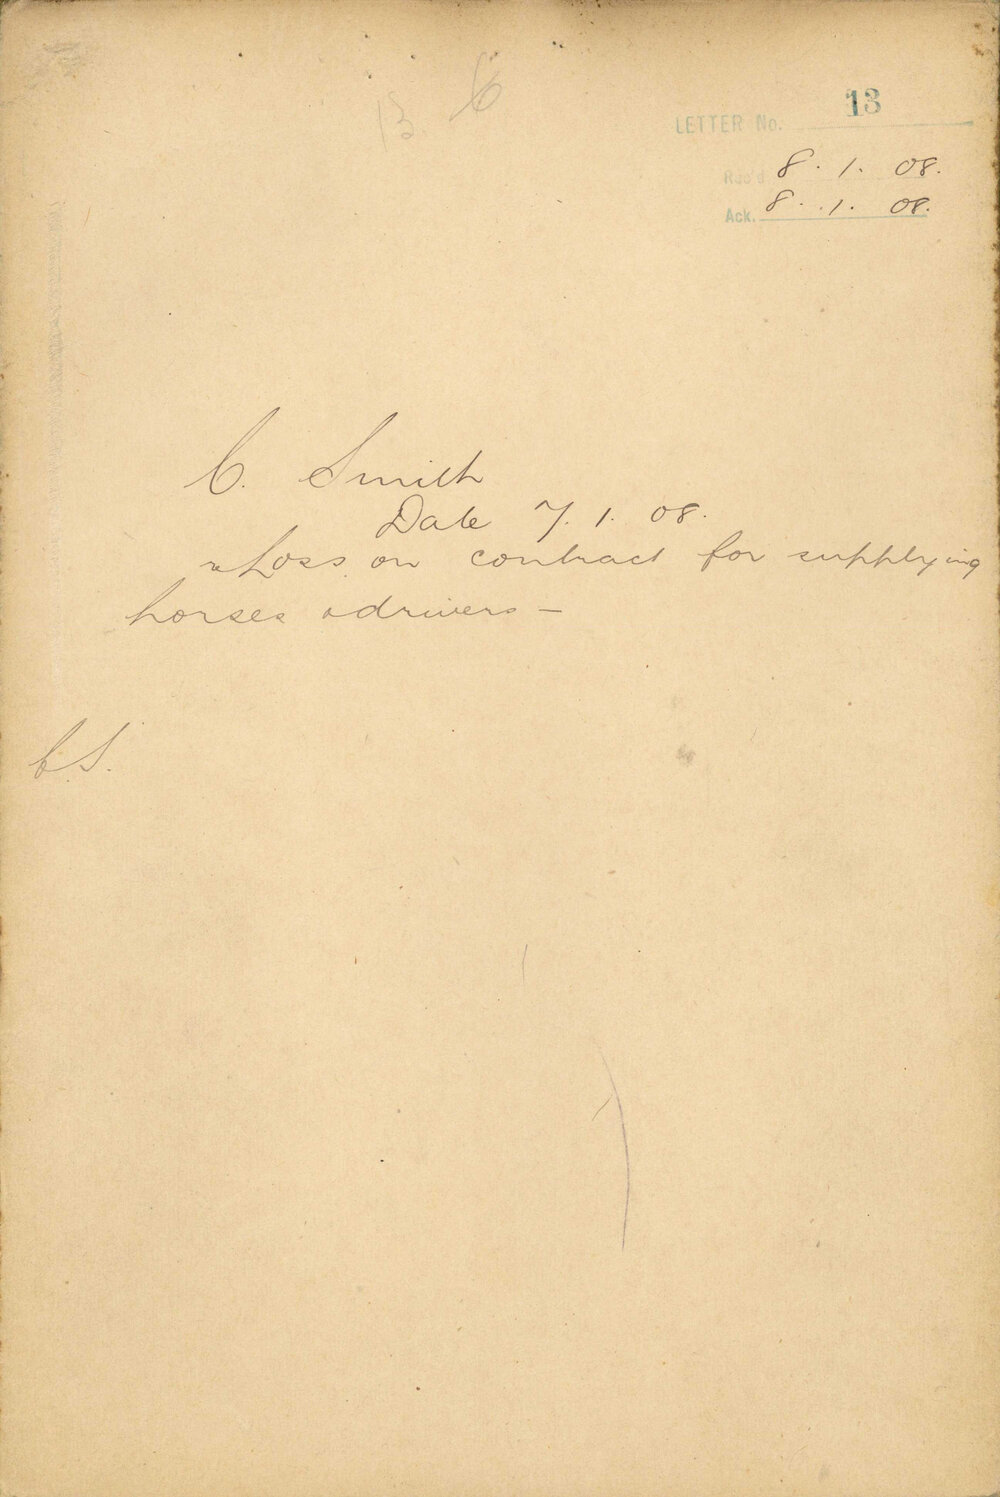 13 C
LETTER No. 13
Rec'd 8.1.08.
Ack. 8.1.08.
C. Smith
Date 7.1.08.
re Loss on contract for supplying
horses & drivers —
C.S.